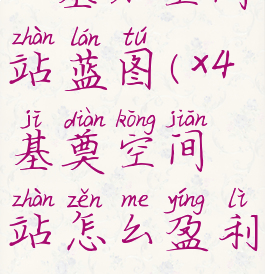 zhàn lán tú
站蓝图(×4
jī diàn kōng jiān
基奠空间
zhàn zěn me yíng lì
站怎么盈利